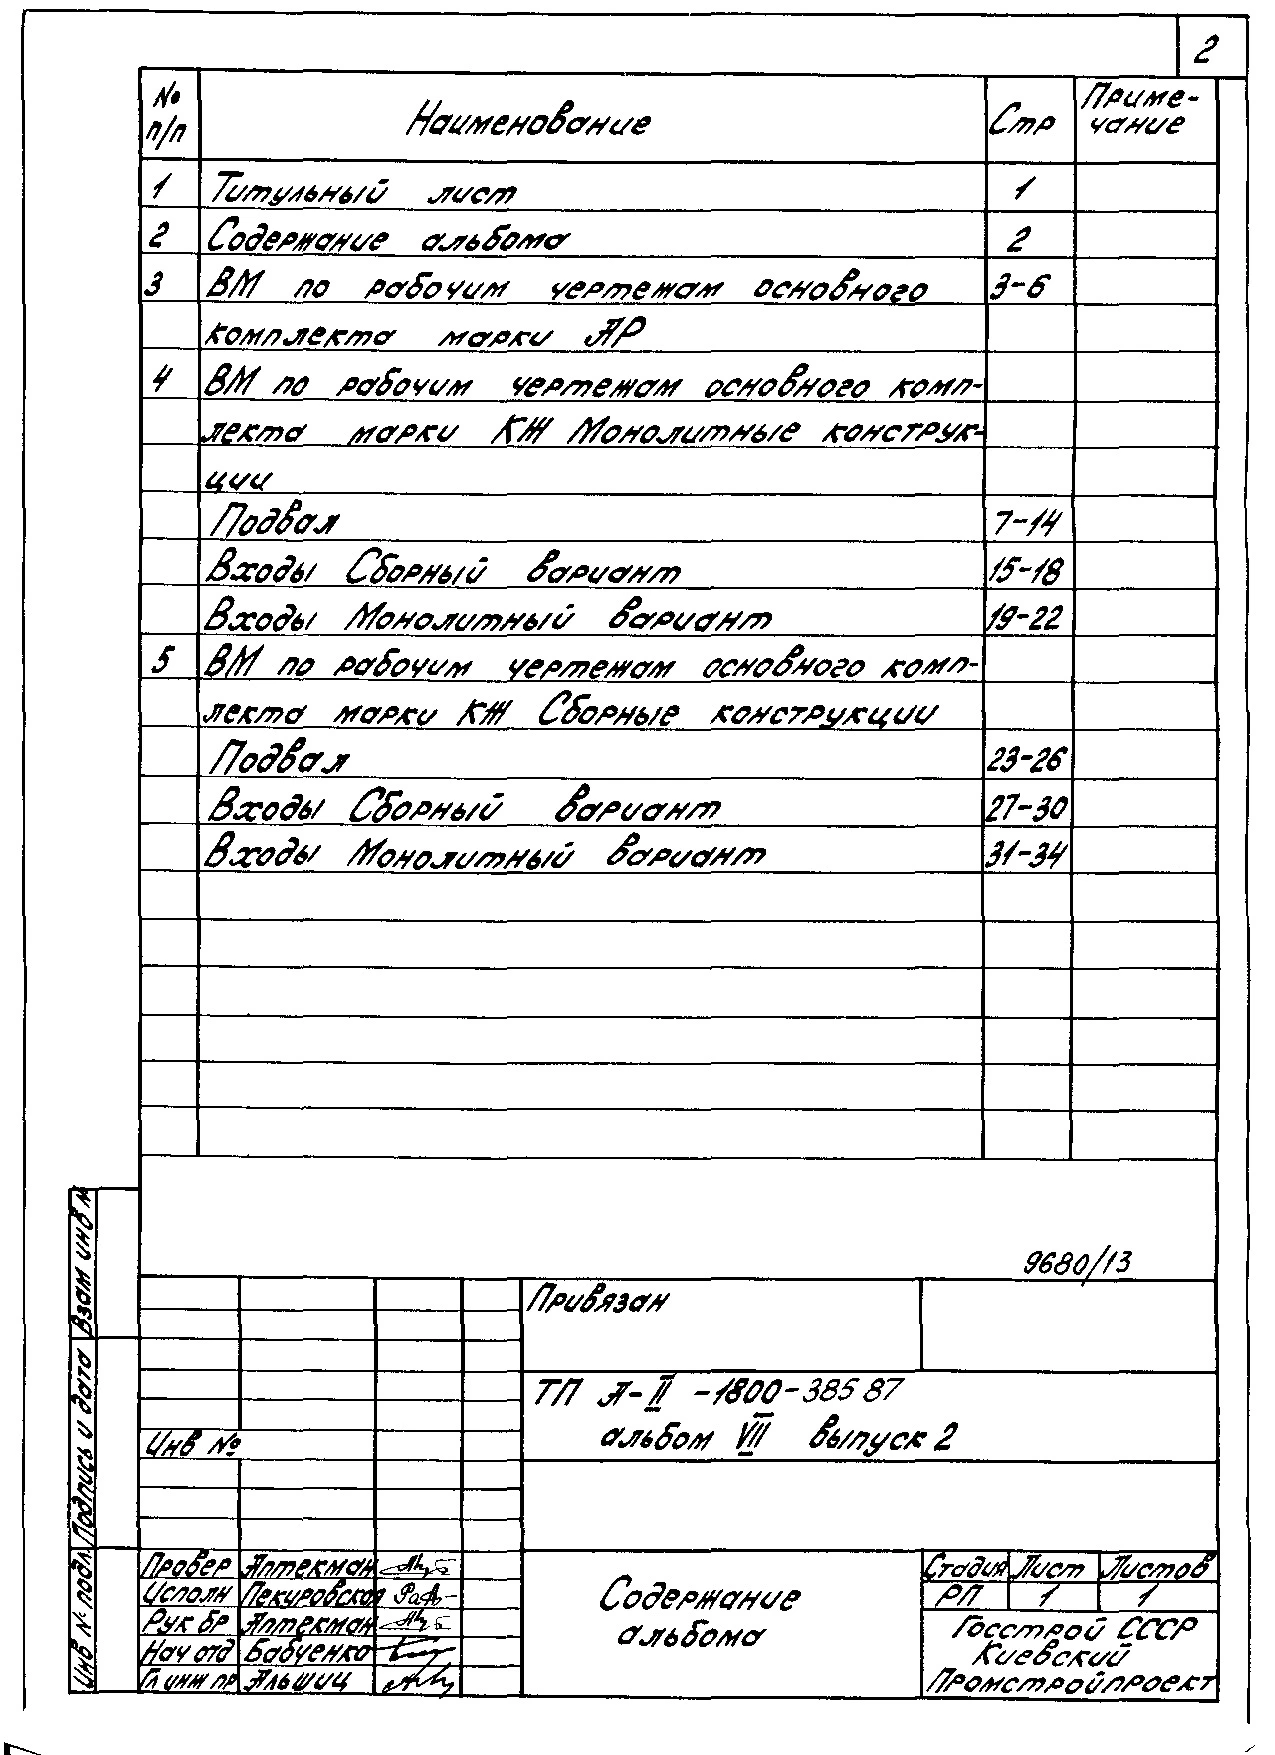 2
№ п/п Наименование Стр Приме-
чание
1 Титульный лист 1
2 Содержание альбома 2
3 ВМ по рабочим чертежам основного 3-6
комплекта марки АР
4 ВМ по рабочим чертежам основного комп-
лекта марки КЖ Монолитные конструк-
ции
Подвал 7-14
Входы Сборный вариант 15-18
Входы Монолитный вариант 19-22
5 ВМ по рабочим чертежам основного комп-
лекта марки КЖ Сборные конструкции
Подвал 23-26
Входы Сборный вариант 27-30
Входы Монолитный вариант 31-34
Взам инв №
Подпись и дата
Инв № подл.
9680/13
Привязан
ТП А-II-1800-385 87
альбом VIII выпуск 2
Инв №
Провер Аптекман
Исполн Пекуровская
Рук бр Аптекман
Нач отд Бабченко
Гл инж пр Альшиц
Содержание
альбома
Стадия Лист Листов
РП 1 1
Госстрой СССР
Киевский
Промстройпроект